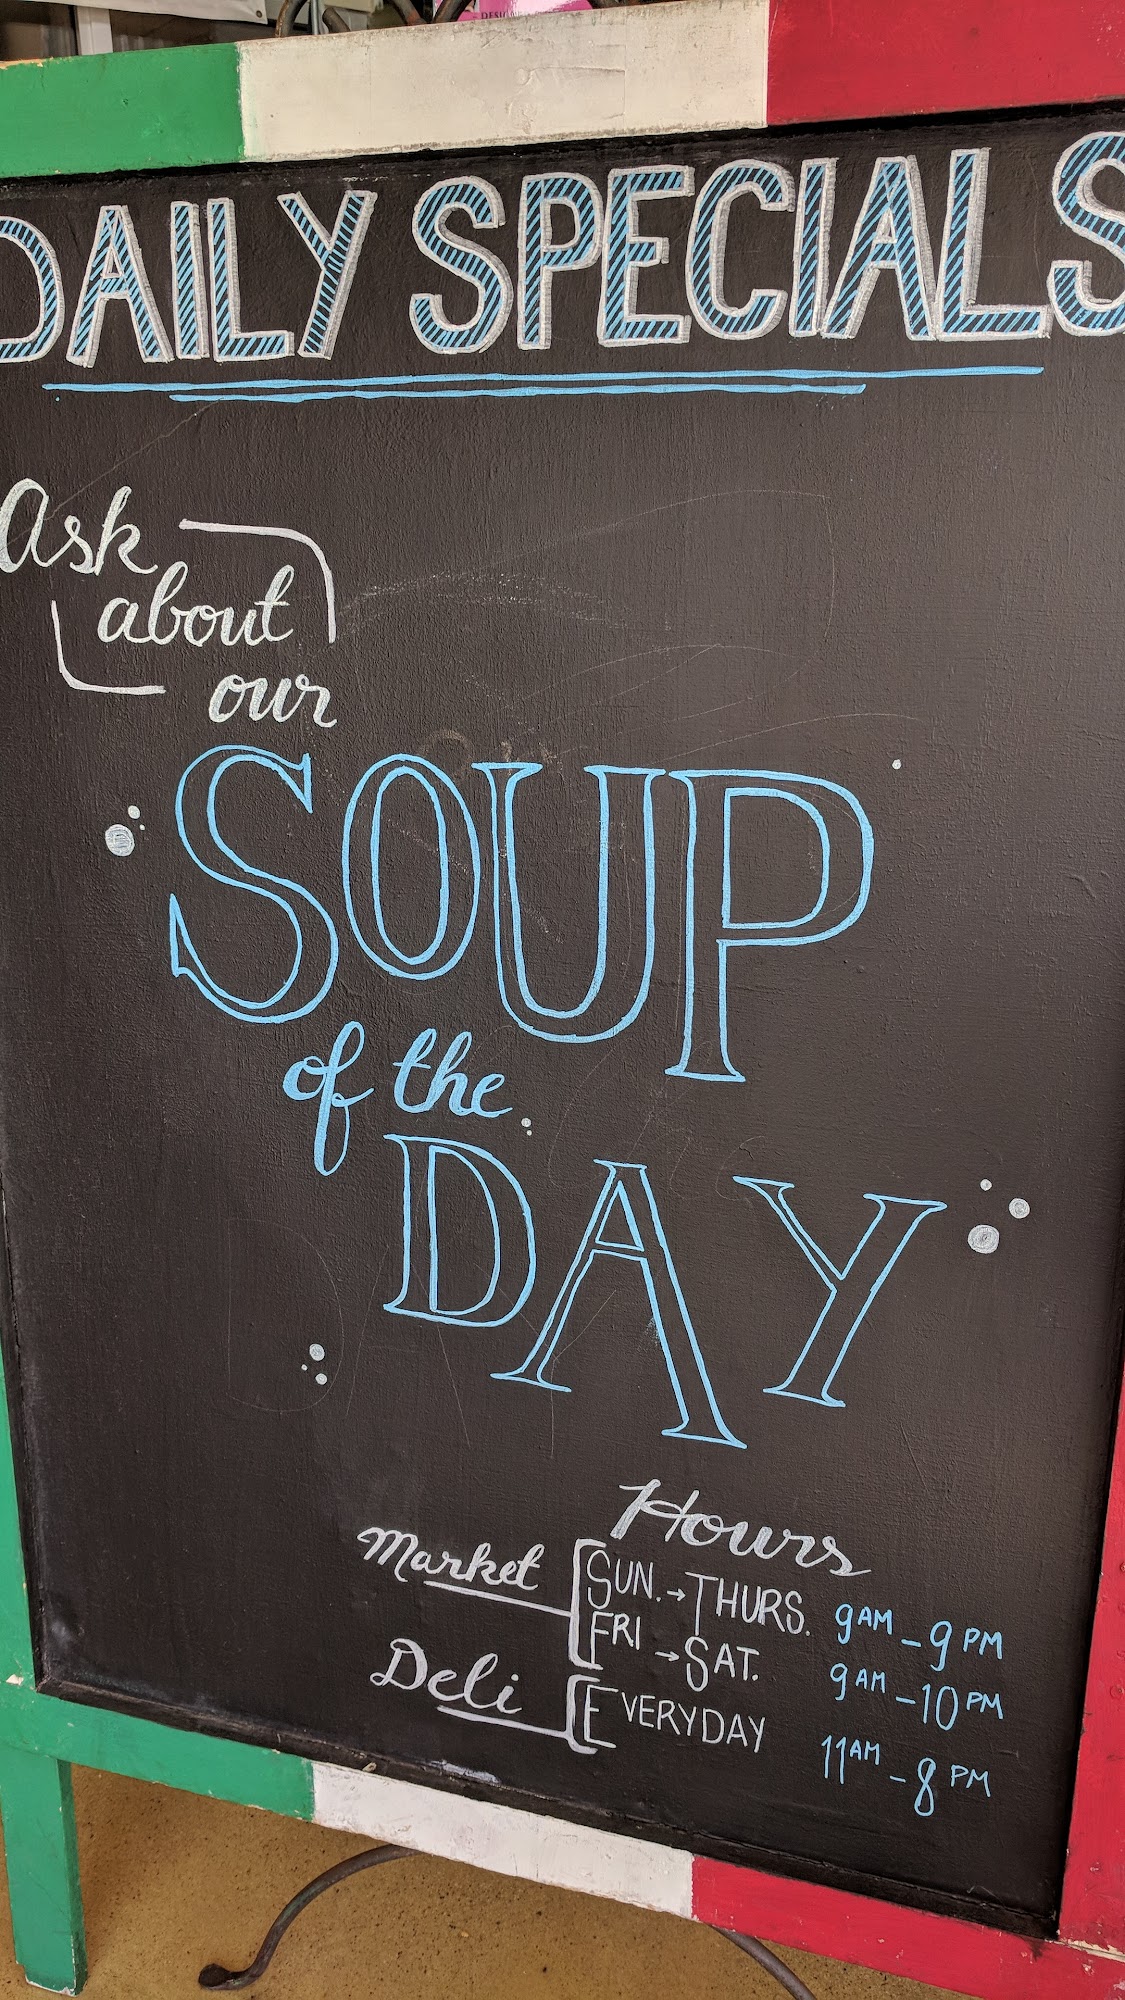 DESIGNE
DAILY SPECIALS
Ask
about
our
SOUP
of the
DAY
Hours
Market
SUN. → THURS. 9AM - 9PM
FRI → SAT. 9AM - 10PM
Deli
EVERYDAY 11AM - 8PM